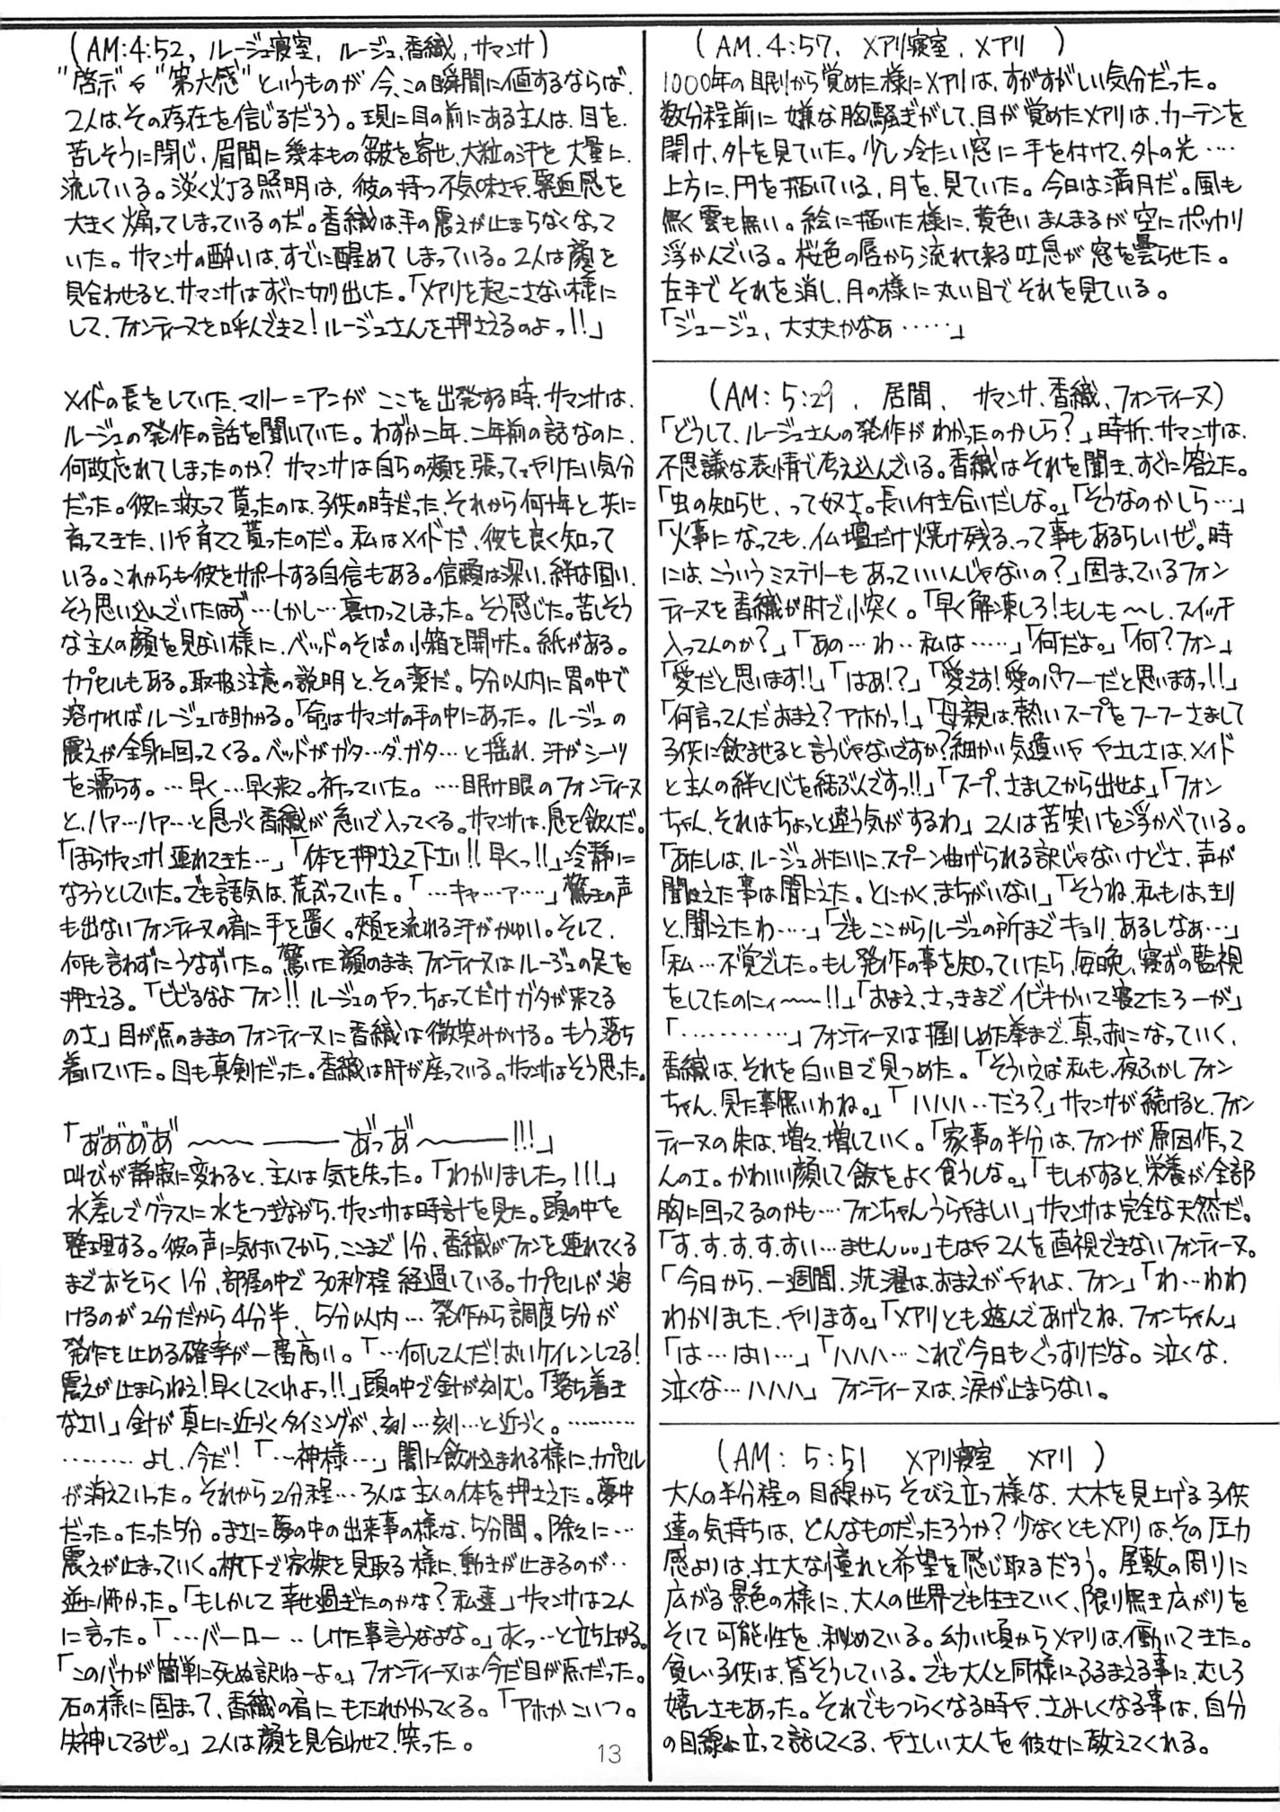 (AM:4:52, ルージュ寝室, ルージュ,香織,サマンサ)
"啓示"や"第六感"というものが今、この瞬間に値するならば、
2人は、その存在を信じるだろう。現に目の前にある主人は、目を、
苦しそうに閉じ、眉間に幾本もの皺を寄せ、大粒の汗を大量に、
流している。淡く灯る照明は、彼の持つ不気味さや、緊迫感を
大きく煽ってしまっているのだ。香織は、手の震えが止まらなくなって
いた。サマンサの酔いは、すでに醒めてしまっている。2人は顔を
見合わせると、サマンサはすぐに切り出した。「メアリを起こさない様に
して、フォンティーヌを呼んできて!ルージュさんを押さえるのよっ!!」
メイドの長をしていた、マリー=アンがここを出発する時、サマンサは、
ルージュの発作の話を聞いていた。わずか二年、二年前の話なのに、
何故忘れてしまったのか?サマンサは自らの頬を、張ってやりたい気分
だった。彼に救って貰ったのは、子供の時だった、それから何十年と、共に
育ってきた、いや育てて貰ったのだ。私はメイドだ、彼を良く知って
いる。これからも彼をサポートする自信もある。信頼は深い、絆は固い、
そう思い込んでいたはず…しかし…裏切ってしまった。そう感じた。苦しそう
な主人の顔を見ない様に、ベッドのそばの小箱を開けた。紙がある。
カプセルもある。取扱注意の説明と、その薬だ。5分以内に胃の中で
溶ければルージュは助かる。「命はサマンサの手の中にあった。ルージュの
震えが全身に回ってくる。ベッドがガタ…ダ、ガタ…と揺れ、汗がシーツ
を濡らす。…早く…早く来て。祈っていた。…眠け眼のフォンティーヌ
と、ハァ…ハァ…と息づく香織が急いで入ってくる。サマンサは、息を飲んだ。
「ほらサマンサ!連れてきた…」「体を押さえて下さい!!早くっ!!」冷静に
なろうとしていた。でも語気は、荒ぶっていた。「…キャ…ァ…」驚きの声
も出ないフォンティーヌの肩に手を置く。頬を流れる汗がかゆい。そして、
何も言わずにうなずいた。驚いた顔のまま、フォンティーヌはルージュの足を
押さえる。「ビビるなよフォン!!ルージュのヤツ、ちょっとだけガタが来てる
のさ」目が点のままのフォンティーヌに香織は微笑みかける。もう落ち
着いていた。目も真剣だった。香織は肝が座っている。サマンサはそう思った。
「あ゛あ゛あ゛あ゛〜〜〜――――あ゛っあ゛〜――――!!!」
叫びが静寂に変わると、主人は気を失った。「わかりましたっ!!!」
水差しでグラスに水をつぎながら、サマンサは時計を見た。頭の中を
整理する。彼の声に気付いてから、ここまで1分、香織がフォンを連れてくる
までおそらく1分、部屋の中で30秒程経過している。カプセルが溶
けるのが2分だから4分半、5分以内…発作から調度5分が
発作を止める確率が一番高い。「…何してんだ!おいケイレンしてる!
震えが止まらねえ!早くしてくれよっ!!」頭の中で針が刻む。「落ち着き
なさい」針が真上に近づくタイミングが、刻…刻…と近づく。…………
………よし、今だ!「…神様…」闇に飲み込まれる様に、カプセル
が消えていった。それから2分程…3人は主人の体を押さえた。夢中
だった。たった5分。まさに夢の中の出来事の様な、5分間。除々に…
震えが止まっていく。枕下で家族を見取る様に、動きが止まるのが…
逆に怖かった。「もしかして幸せ過ぎたのかな?私達」サマンサは2人
に言った。「…バーロー…しけた事言うなよな。」すくっ…と立ち上がる。
「このバカが簡単に死ぬ訳ねーよ。」フォンティーヌは今だ目が点だった。
石の様に固まって、香織の肩にもたれかかってくる。「アホかこいつ。
失神してるぜ。」2人は顔を見合わせて、笑った。
(AM.4:57, メアリ寝室, メアリ)
1000年の眠りから覚めた様にメアリは、すがすがしい気分だった。
数分程前に嫌な胸騒ぎがして、目が覚めたメアリは、カーテンを
開け、外を見ていた。少し冷たい窓に手を付けて、外の光……
上方に、円を描いている、月を、見ていた。今日は満月だ。風も
無く雲も無い。絵に描いた様に、黄色いまんまるが空にポッカリ
浮かんでいる。桜色の唇から流れて来る吐息が窓を曇らせた。
左手でそれを消し、月の様に丸い目でそれを見ている。
「ジュージュ、大丈夫かなぁ……」
(AM:5:29, 居間, サマンサ,香織,フォンティーヌ)
「どうして、ルージュさんの発作がわかったのかしら?」時折、サマンサは、
不思議な表情で考え込んでいる。香織はそれを聞き、すぐに答えた。
「虫の知らせ、って奴さ。長い付き合いだしな。」「そうなのかしら…」
「火事になっても、仏壇だけ焼け残る、って事もあるらしいぜ。時
には、こういうミステリーもあっていいんじゃないの?」固まっているフォン
ティーヌを香織が肘で小突く。「早く解凍しろ!もしも〜し、スイッチ
入ってんのか?」「あの…わ…私は……」「何だよ。」「何?フォン」
「愛だと思います!!」「はあ!?」「愛です!愛のパワーだと思いますっ!!」
「何言ってんだおまえ?アホかっ!」「母親は、熱いスープをフーフーさまして
子供に飲ませると言うじゃないですか?細かい気遣いややさしさは、メイド
と主人の絆と心を結ぶんですっ!!」「スープ、さましてから出せよ」「フォン
ちゃん、それはちょっと違う気がするわ」2人は苦笑いを浮かべている。
「あたしは、ルージュみたいにスプーン曲げられる訳じゃないけどさ、声が
聞こえた事は聞こえた。とにかく、まちがいない」「そうね、私もはっきり
と、聞こえたわ……」「でもここからルージュの所までキョリ、あるしなぁ…」
「私…不覚でした。もし発作の事を知っていたら、毎晩、寝ずの監視
をしてたのにィ〜〜!!」「おまえ、さっきまでイビキかいて寝てたろーが」
「…………」フォンティーヌは握りしめた拳まで、真っ赤になっていく、
香織は、それを白い目で見つめた。「そういえば私も、夜ふかしフォン
ちゃん、見た事無いわね。」「ハハハ…だろ?」サマンサが続けると、フォン
ティーヌの朱は、増々、増していく。「家事の半分は、フォンが原因作って
んのさ。かわいい顔して飯をよく食うしな。」「もしかすると、栄養が全部
胸に回ってるのかも…フォンちゃんうらやましい」サマンサは完全な天然だ。
「す、す、す、す、すい…ません…」もはや2人を直視できないフォンティーヌ。
「今日から、一週間、洗濯は、おまえがやれよ、フォン」「わ…わわ
わかりました、やります。」「メアリとも遊んであげてね、フォンちゃん」
「は…はい…」「ハハハ…これで今日もぐっすりだな。泣くな、
泣くな…ハハハ」フォンティーヌは、涙が止まらない。
(AM: 5:51 メアリ寝室 メアリ)
大人の半分程の目線からそびえ立つ様な、大木を見上げる子供
達の気持ちは、どんなものだったろうか?少なくともメアリは、その圧力
感よりは、壮大な憧れと希望を感じ取るだろう。屋敷の周りに
広がる景色の様に、大人の世界でも生きていく、限り無き広がりを
そして可能性を、秘めている。幼い頃からメアリは、働いてきた。
貧しい子供は、皆そうしている。でも大人と同様にふるまえる事に、むしろ
嬉しさもあった。それでもつらくなる時や、さみしくなる事は、自分
の目線に立って話してくる、やさしい大人を彼女に教えてくれる。
13